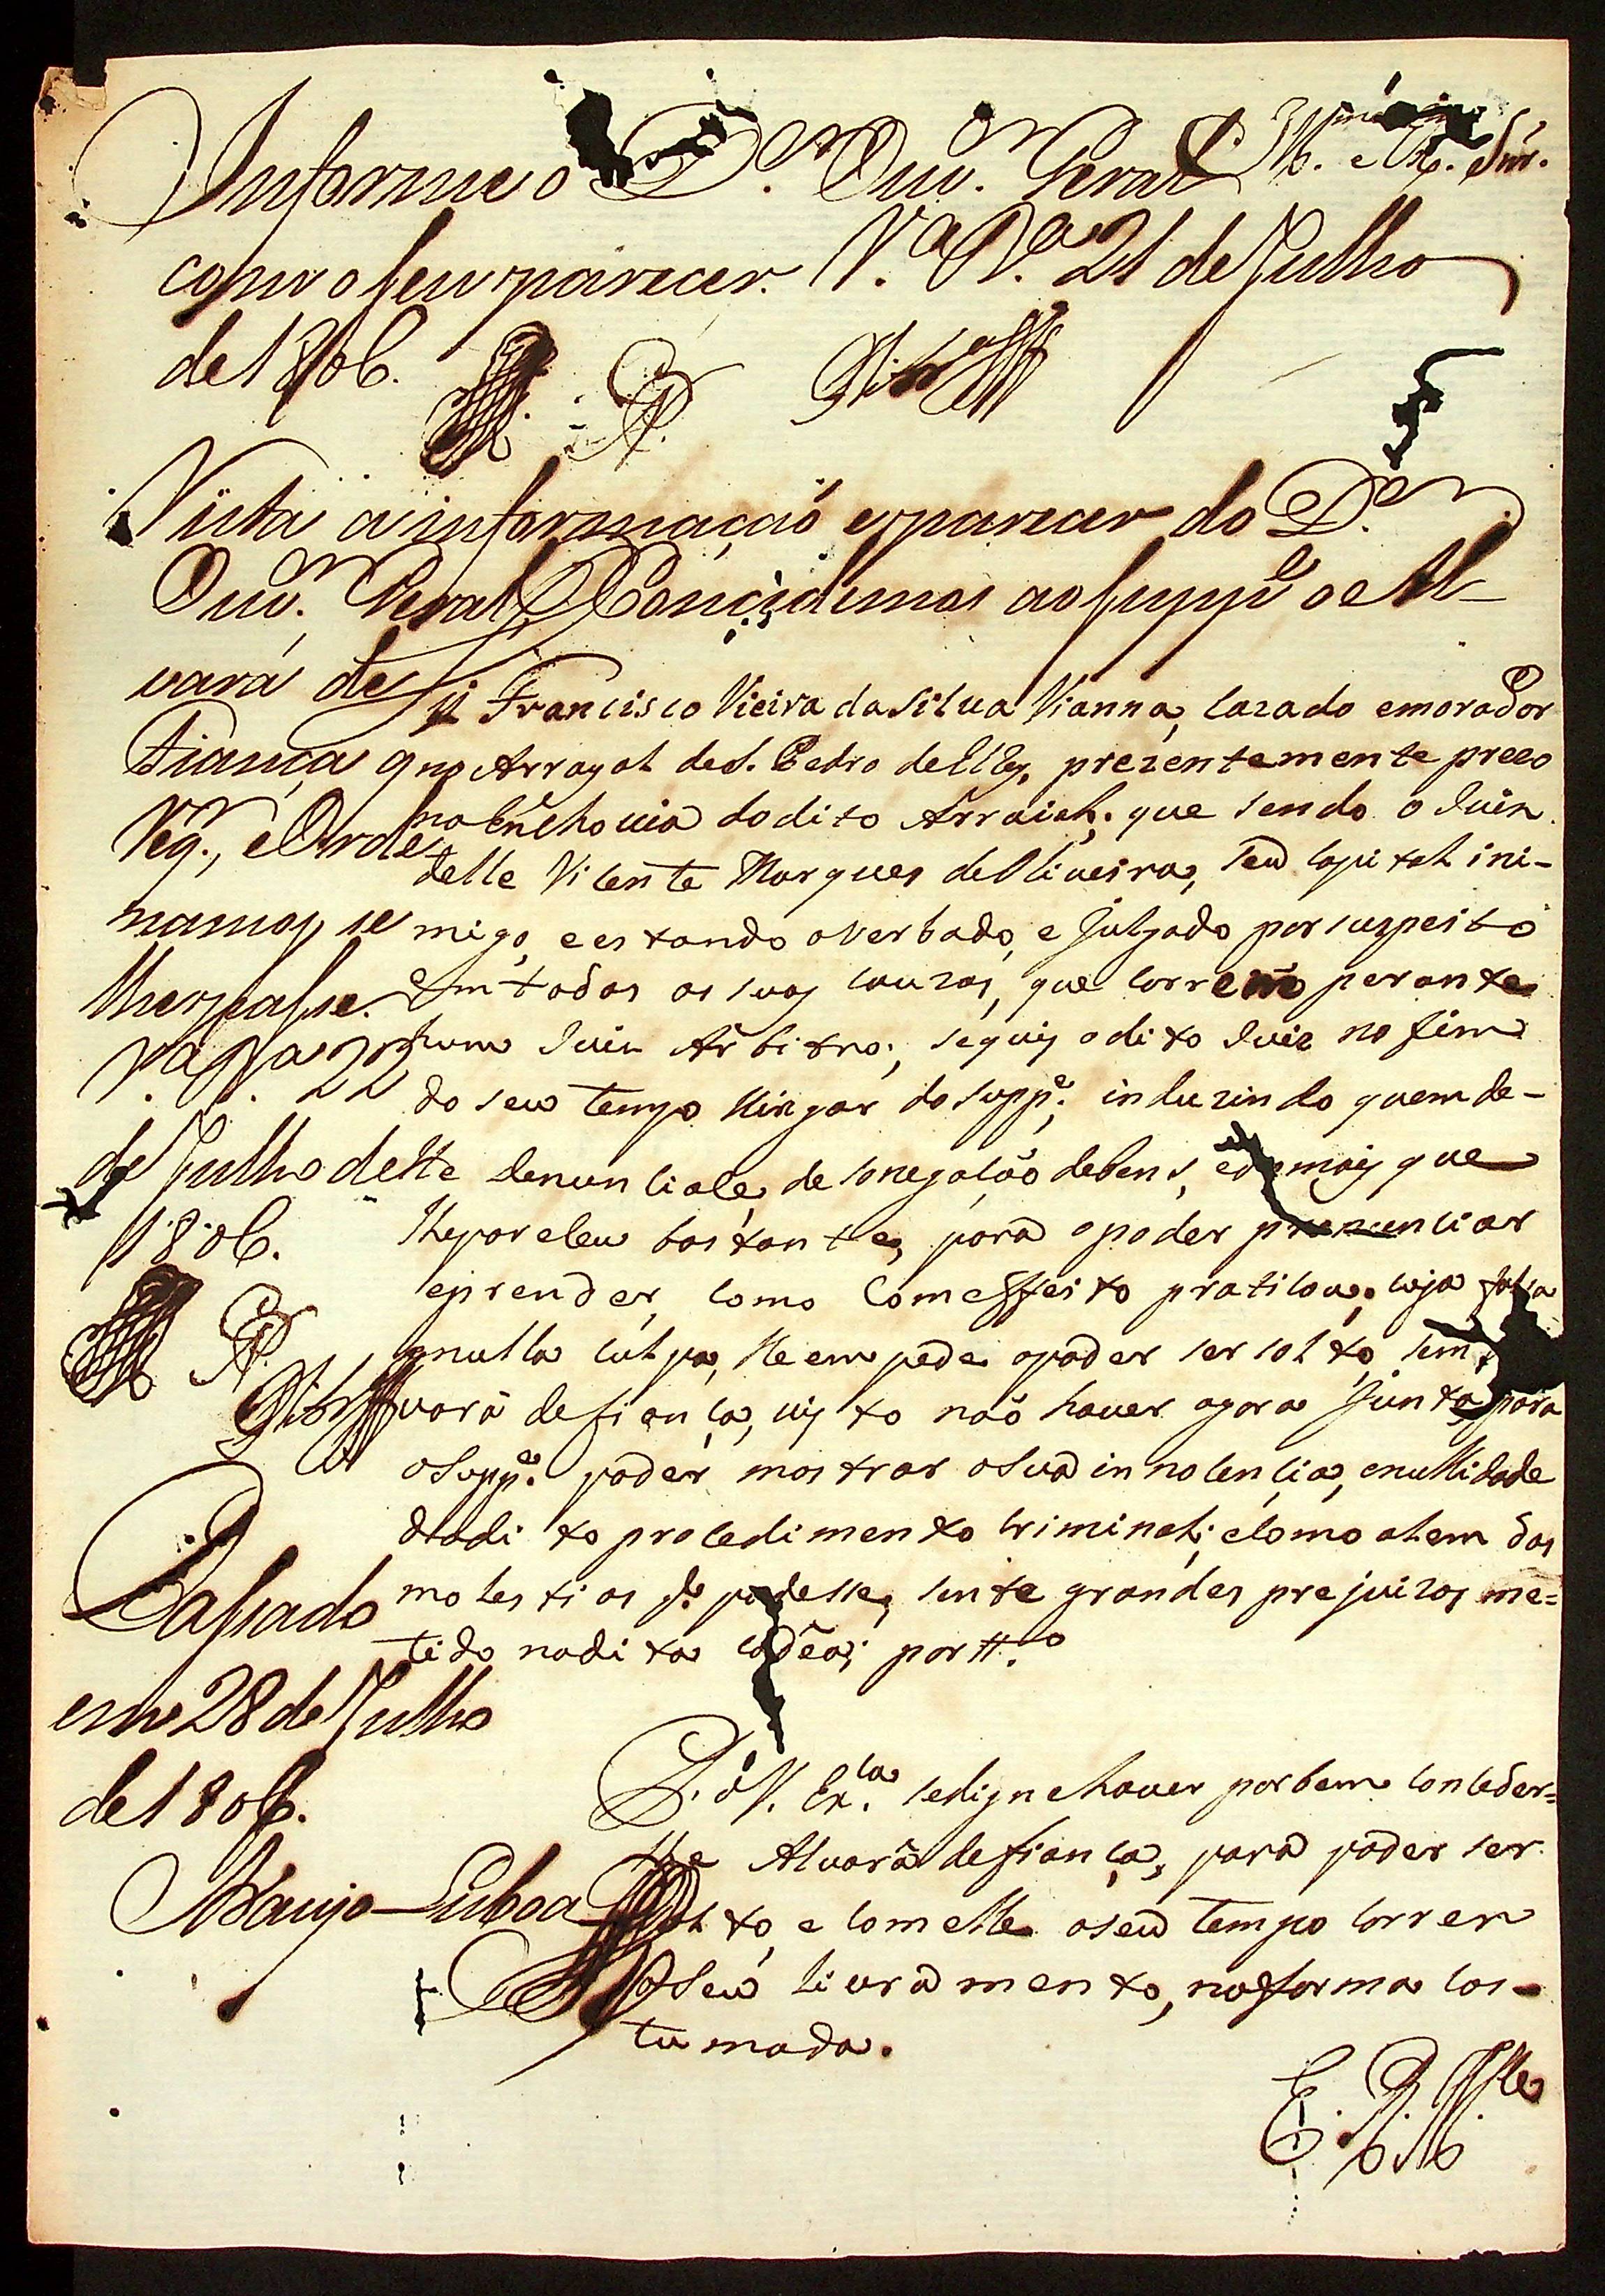 Informe o D.or Ouv.or Geral
Ill.mo e Ex.mo Snr.
com o seu parecer. V.a B.a 21 de Julho
de 1806.
Vista a informaçaõ e parecer do D.or
Ouv.or Geral Concedemos ao supp.e o Al-
vará de
Fiança q
req.r, e Orde
namos se
lhe passe.
V.a B.a 22
de Julho de
1806.
Passado
em 28 de Julho
de 1806.
Araujo Lisboa
Francisco Vieira da Silva Vianna, cazado e morador
no Arrayal de S. Pedro delRey, prezentemente prezo
na Enchovia do dito Arraial; que sendo o Juiz
delle Vicente Marques deOliveira, seu capital ini-
migo, e estando averbado, e julgado por suspeito
em todas as suas cauzas, que correm perante
hum Juiz Arbitro; seguiz o dito Juiz no fim
do seu tempo vingar do supp.e; induzindo quem de-
lle denunciace, de sonegação de bens, e o mais que
lhe pareceu bastante, para o poder pronunciar
e prender, como com effeito praticou; cuja falsa
e nulla culpa, lhe empede o poder ser solto, sem
vará de fiança, visto naõ haver agora Junta, para
o Supp.e poder mostrar a sua innocencia, e nullidade
do dito procedimento criminal; e como alem das
molestias q.' padesse, sente grandes prejuizos me=
tido na dita cadêa; por tt.o
P. a V. Ex.cia se digne haver por bem conceder=
lhe Alvará de fiança, para poder ser
solto, e com elle a seu tempo correr
o seu livramento, na forma cos-
tumada.
E. R. M.ce